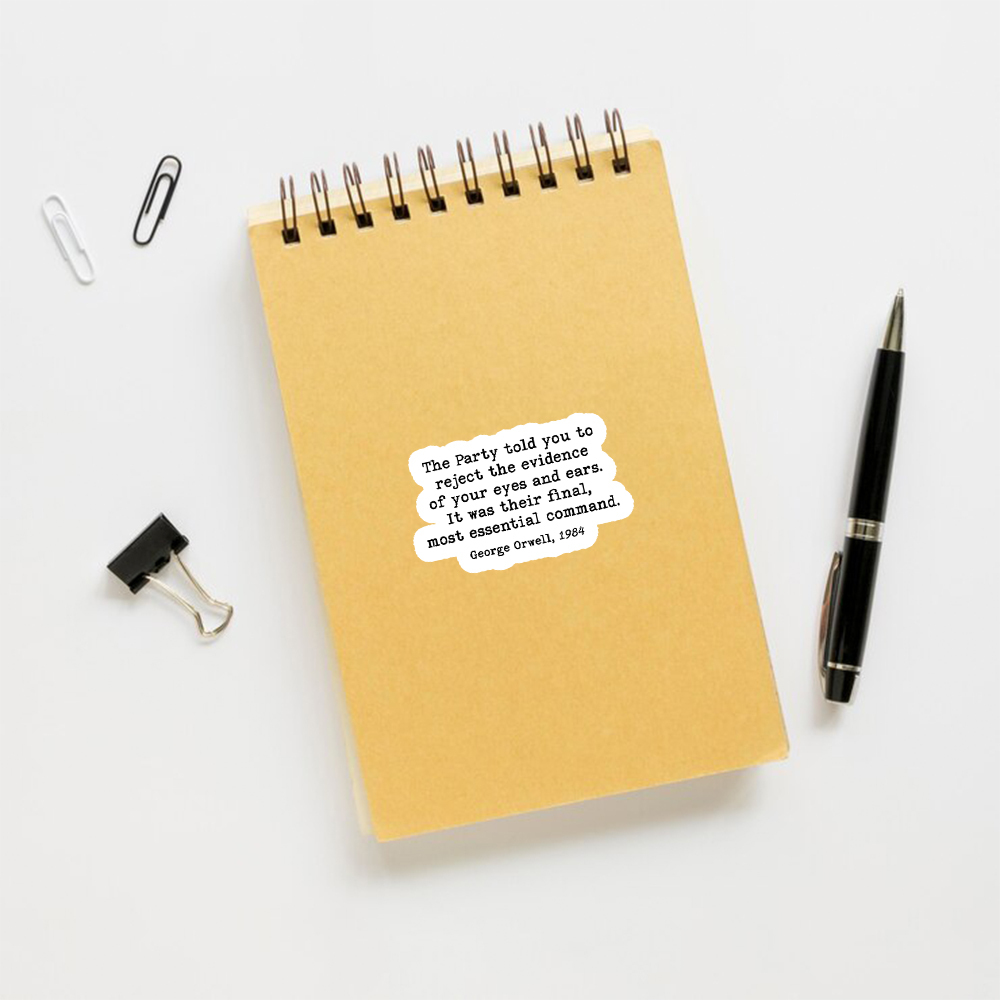 The Party told you to
reject the evidence
of your eyes and ears.
It was their final,
most essential command.
George Orwell, 1984